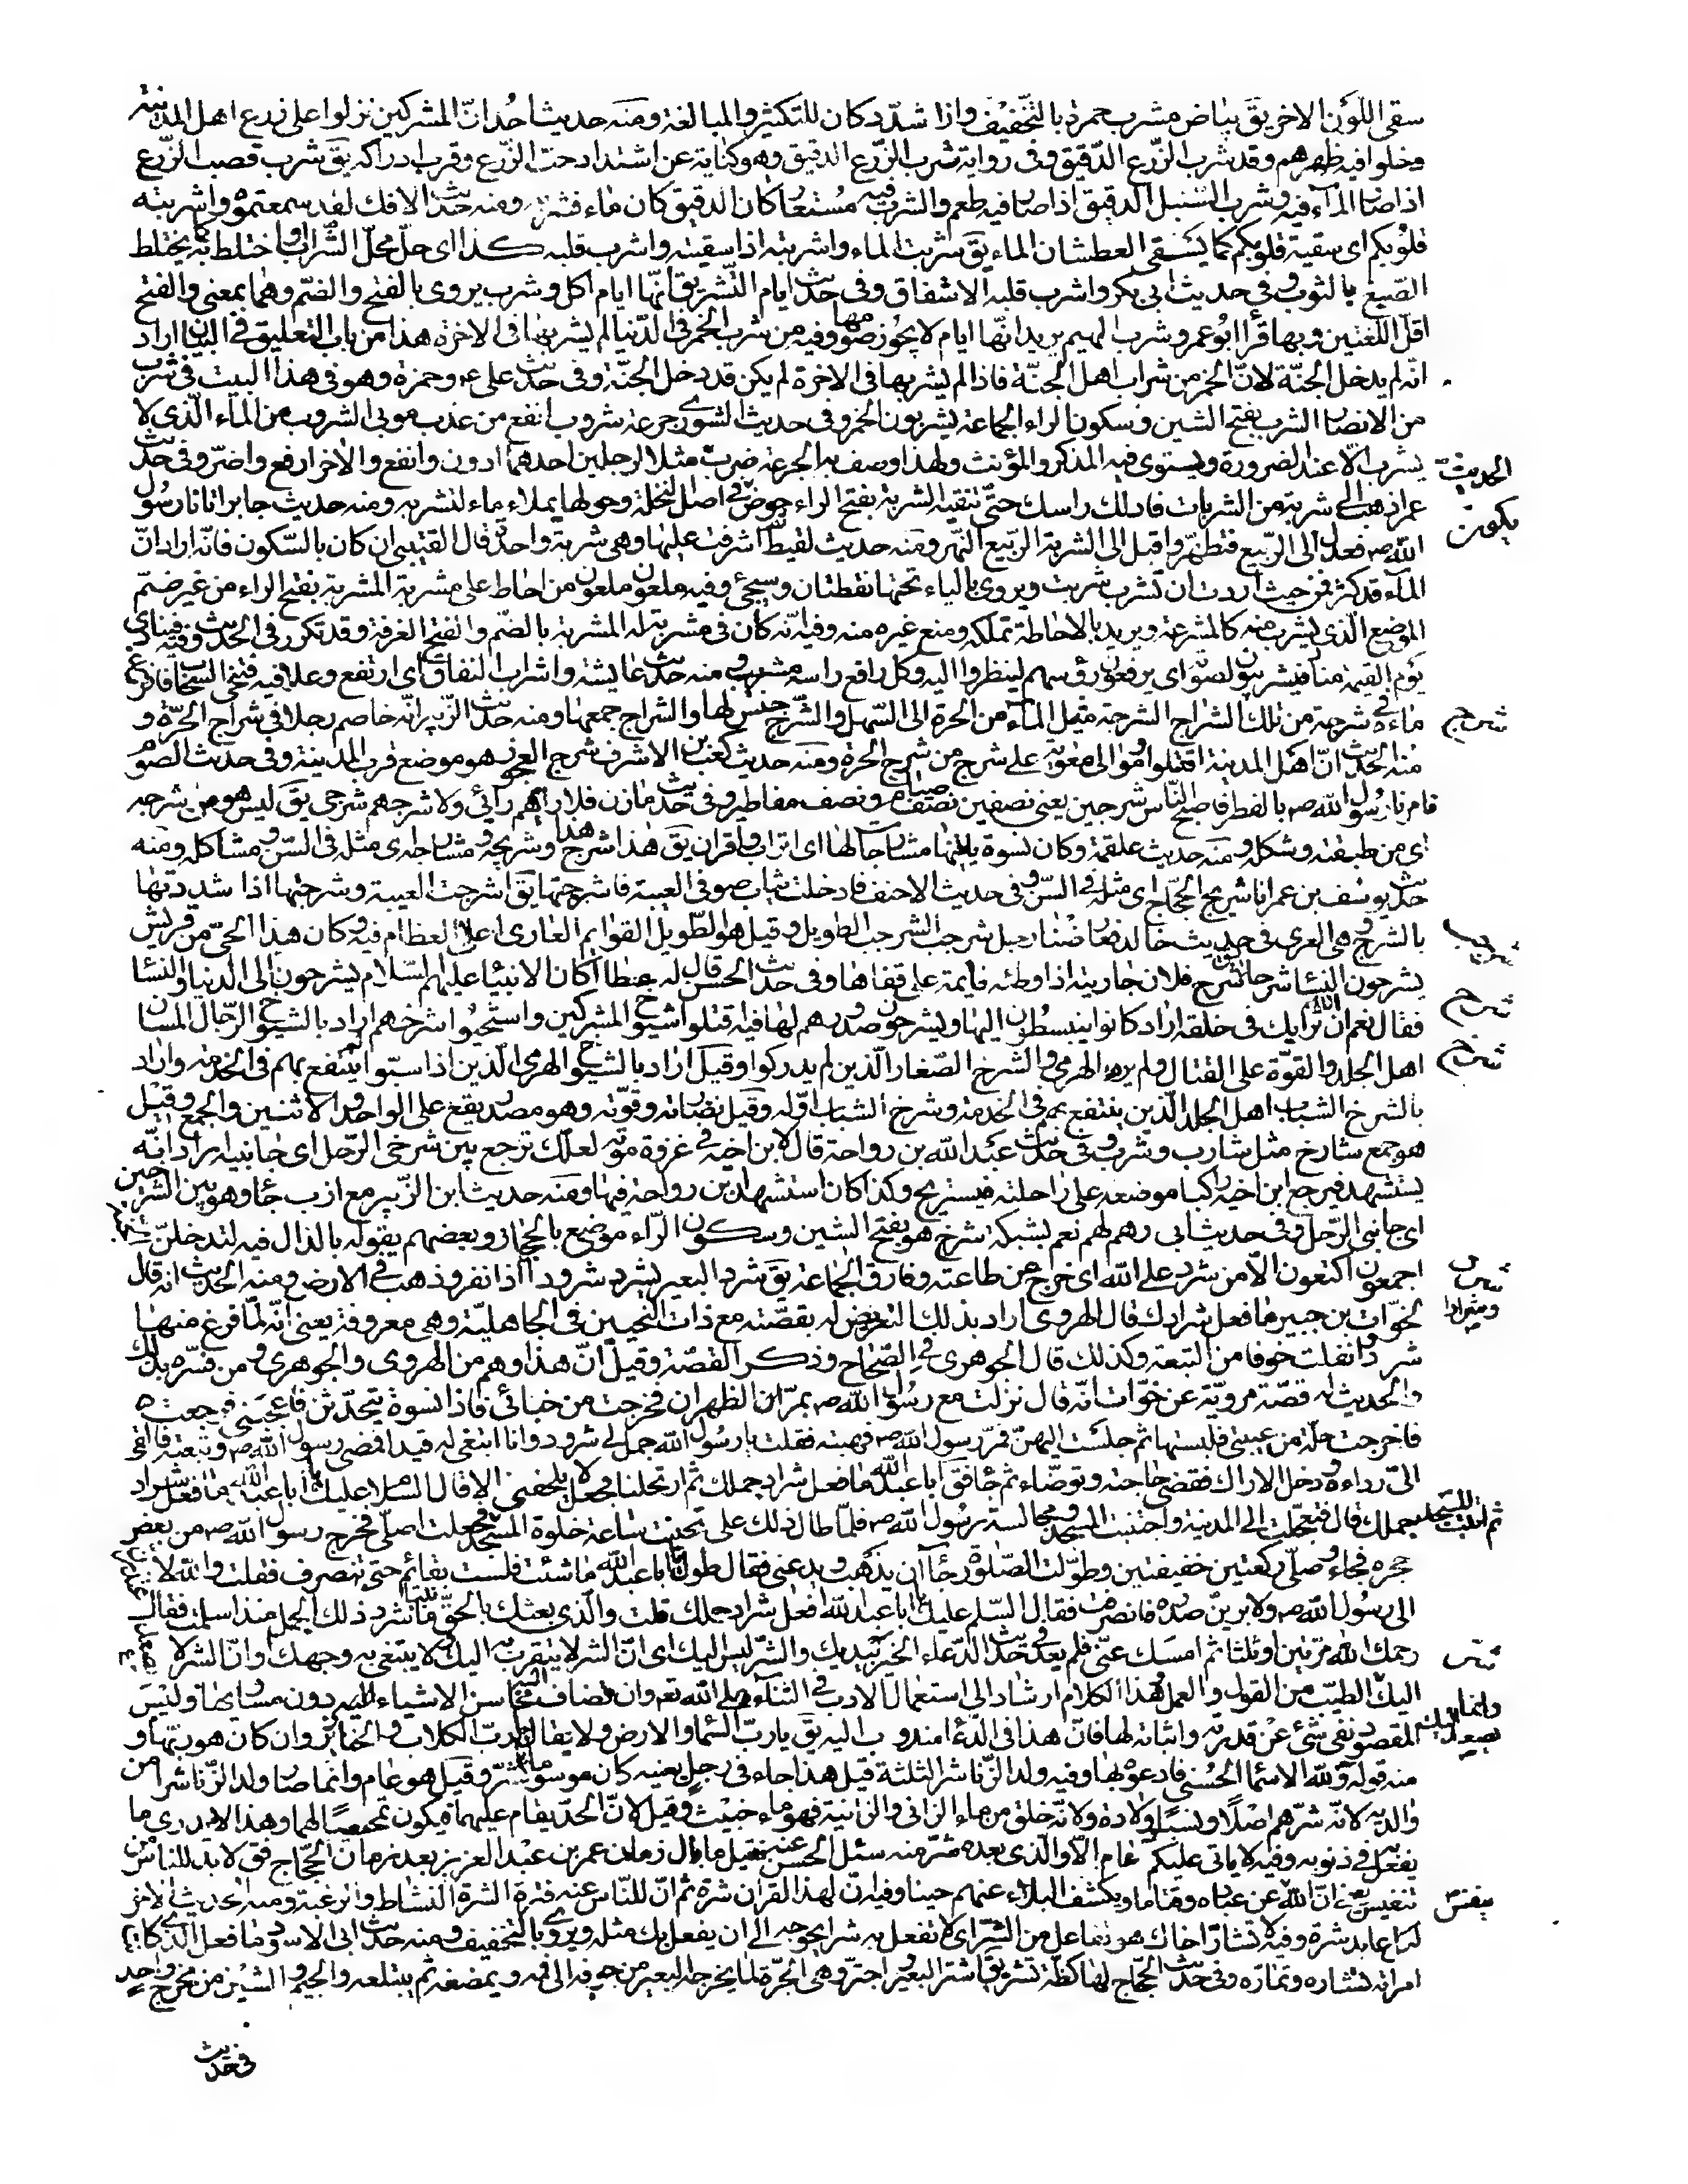 سقى اللّون الاخر يقَ بياض مشرب حمرة بالتّخفيف واذا شدّد كان للتكثير والمبالغة ومنه حديث اُحُد انّ المشركين نزلوا على زرع اهل المدينة
وخلوا فيه ظهرهم وقد شرب الزّرع الدّقيق وفى رواية شرب الزّرع الدقيق وهو كناية عن اشتداد حب الزّرع وقرب ادراكه يقَ شرب قصب الزّرع
اذا صار المآء فيه وشرب السّنبل الدقيق اذا صار فيه طعم والشرب فيه مستعار كان الدقيق كان ماء فشربه ومنه حديث الافك لقد سمعتموه واشربته
قلوبكم اى سقيته قلوبكم كما يسقى العطشان الماء يقَ شربت الماء واشربته اذا سقيته واشرب قلبه كذا اى حلّ محلّ الشّراب او اختلط به كما يختلط
الصّبغ بالثوب وفى حديث ابى بكر واشرب قلبه الاشفاق وفى حديث ايام التّشريق انّها ايام اكل وشرب يروى بالفتح والضّم وهما بمعنى والفتح
اقلّ اللّغتين وبها قرأ ابو عمرو شرب الهيم يريد انّها ايام لا يجوز صومها وفيه من شرب الخمر فى الدّنيا لم يشربها فى الاخرة هذا من باب التعليق فى البيان اراد
انه لم يدخل الجنّة لانّ الخمر من شراب اهل الجنّة فاذا لم يشربها فى الاخرة لم يكن قد دخل الجنّة وفى حديث على ع وحمزة وهو فى هذا البيت فى شرب
من الانصار الشرب بفتح الشين وسكون الراء الجماعة يشربون الخمر وفى حديث الشورى جرعة شروب انفع من عذب موبى الشروب من الماء الّذى لا
يشرب الّا عند الضرورة ويستوى فيه المذكر والمؤنث ولهذا وصف به الجرعة ضرب مثلا لرجلين احدهما ادون وانفع والاخر ارفع واضرّ وفى حديث
عمر اذهب الى شربة من الشربات فادلك راسك حتّى تنقيه الشربة بفتح الراء حوض فى اصل النخلة وحولها يملاء ماء لتشربه ومنه حديث جابر اتانا رسول
اللّه صر فعدل الى الرّبيع فتطهّر واقبل الى الشربة الرّبيع النّهر ومنه حديث لقيط ثمّ اشرفت عليها وهى شربة واحدة قال القتيبى ان كان بالسّكون فانّه اراد انّ
المآء قد كثر فمن حيث اردت ان تشرب شربت ويروى بالياء تحتها نقطتان وسيجئ وفيه ملعون ملعون من احاط على مشربة المشربة بفتح الراء من غير ضمّ
الموضع الّذى يشرب منه كالمشرعة ويريد بالاحاطة تملكه ومنع غيره منه وفيه انّه كان فى مشربة له المشربة بالضّم والفتح الغرفة وقد تكرر فى الحديث وفيه فينادى
يوم القيمة مناد فيشربون لصوته اى يرفعون رؤسهم لينظروا اليه وكل رافع راسه مشرب ومنه حديث عايشة واشرابّ النفاق اى ارتفع وعلا فيه فتنحى السحاب فافرغ
ماءه فى شرجة من تلك الشراج الشرجة مسيل الماء من الحرة الى السّهل والشّرج جنس لها والشراج جمعها ومنه حديث الزّبير انّه خاصم رجلا فى شراج الحرّة و
منه الحديث انّ اهل المدينة اقتتلوا وموالى معوية على شرج من شرج الحرة ومنه حديث كعب بن الاشرف شرج العجوز هو موضع قرب المدينة وفى حديث الصّوم
فامرنا رسول اللّه صر بالفطر فاصبح النّاس شرجين يعنى نصفين نصف صيام ونصف مفاطير وفى حديث مازن فلا رأيهم رأئى ولا شرجهم شرجى يقَ ليس هو من شرجه
اى من طبقته وشكله ومنه حديث علقمة وكان نسوة ياتينها مشارجات لها اى اتراب واقران يقَ هذا شرج هذا وشريجه ومشارجه اى مثله فى السّن ومشاكله ومنه
حديث يوسف بن عمر انا شريج الحجّاج اى مثله فى السّن وفى حديث الاحنف فادخلت ثياب صونى العيبة فاشرجتها يقَ اشرجت العيبة وشرجتها اذا شددتها
بالشرج وهى العرى فى حديث خالد فعارضنا رجل شرجب الشرجب الطويل وقيل هو الطّويل القوايم العارى اعلا العظام فيه وكان هذا الحىّ من قريش
يشرحون النّساء شرحا يقَ شرح فلان جاريته اذا وطئها نايمة على قفاها وفى حديث الحسن قال له عطا اكان الانبياء عليهم السّلام يشرحون الى الدنيا والنسّاء
فقال نعم ان للّه ترايك فى خلقه اراد كانوا ينبسطون اليها ويشرحون صدورهم لها فيه اقتلوا شيوخ المشركين واستحيوا شرخهم اراد بالشيوخ الرّجال المسان
اهل الجلد والقوّة على القتال ولم يرد الهرمى والشرخ الصّغار الّذين لم يدركوا وقيل اراد بالشيوخ الهرمى الّذين اذا سبّوا لم ينتفع بهم فى الخدمة واراد
بالشرخ الشباب اهل الجلد الّذين ينتفع بهم فى الخدمة وشرخ الشباب اوّله وقيل نضارته وقوّته وهو مصدر يقع على الواحد والاثنين والجمع وقيل
هو جمع شارخ مثل شارب وشرب وفى حديث عبد اللّه بن رواحة قال لابن اخيه فى غزوة موته لعلّك ترجع بين شرخى الرّحل اى جانبيه اراد انّه
يستشهد فيرجع ابن اخيه راكبا موضعه على راحلته فيستريح وكذا كان استشهد بن رواحة فيها ومنه حديث ابن الزّبير مع ازب جاء وهو بين الشرخين
اى جانبى الرّحل وفى حديث ابى رهم لهم نعم بشبكة شرخ هو بفتح الشين وسكون الرّاء موضع بالحجاز وبعضهم يقوله بالدال فيه لتدخلنّ
اجمعون اكتعون الّا من شرد على اللّه اى خرج عن طاعته وفارق الجماعة يقَ شرد البعير يشرد شرودا اذا نفر وذهب فى الارض ومنه الحديث انه قال
لخوّات بن جبير ما فعل شرادك قال الهروى اراد بذلك التعريض له بقصّته مع ذات النحيين فى الجاهليّة وهى معروفة يعنى انّه لمّا فرغ منها
شرد وانفلت خوفا من التبعة وكذلك قال الجوهرى فى الصّحاح وذكر القصّة وقيل انّ هذا وهم من الهروى والجوهرى ومن فسّره بذلك
والحديث له قصّة مرويّة عن خوّات انّه قال نزلت مع رسول اللّه صر بمرّ الظهران فخرجت من خبائى فاذا نسوة يتحدّثن فاعجبننى فرجعت
فاخرجت حلّة من عيبتى فلبستها ثم جلست اليهنّ فمرّ رسول اللّه صر فهبته فقلت يا رسول اللّه جمل لى شرود وانا ابتغى له قيدا فمضى رسول اللّه صر وتبعته فالقى
الىّ رداءه ودخل الاراك فقضى حاجته وتوضّاء ثم جاء فقَ ابا عبد اللّه ما فعل شراد جملك ثمّ ارتحلنا فجعل لا يلحقنى الا قال السّلام عليك ابا عبد اللّه ما فعل شراد
جملك قال فتعجّلت الى المدينة واجتنبت المسجد ومجالسة رسول اللّه صر فلمّا طال ذلك على تحينت ساعة خلوة المسجد فجعلت اصلّى فخرج رسول اللّه صر من بعض
حجره فجاء وصلّى ركعتين خفيفتين وطوّلت الصّلوة رجاء ان يذهب ويدعنى فقال طول يا ابا عبد اللّه ما شئت فلست بقائم حتى تنصرف فقلت واللّه لا
الى رسول اللّه صر ولابرينّ صدره فانصرفت فقال السّلم عليك ابا عبد اللّه ما فعل شراد جملك قلت والّذى بعثك بالحقّ ما شرد ذلك الجمل منذ اسلمت فقال
رحمك اللّه مرّتين او ثلثا ثم امسك عنّى فلم يعد وفى حديث الدّعاء الخير بيديك والشّرّ ليس اليك اى انّ الشر لا يتقرب به اليك ولا يبتغى به وجهك وانّ الشر لا
اليك الطيّب من القول والعمل وهذا الكلام ارشاد الى استعمال الادب فى الثناء على اللّه تعه وان تضاف اليه محاسن الاشياء دون مساويها وليس
المقصود نفى شئ عن قدرته واثباته لها فانّ هذا فى الدّعاء مندوب اليه يقَ يا ربّ السّماء والارض ولا يقال يا ربّ الكلاب والخنازير وان كان هو ربّها و
منه قوله وللّه الاسماء الحسنى فادعوه بها وفيه ولد الزّنا شر الثلثة قيل هذا جاء فى رجل بعينه كان موسوما بالشرّ وقيل هو عام وانما صار ولد الزّنا شرا من
والديه لانّه شرّهم اصلًا ونسبًا وولادة ولانّه خلق من ماء الزانى والزانية فهو ماء خبيث وقيل لانّ الحدّ يقام عليهما فيكون تمحيصًا لهما وهذا لا يدرى ما
يفعل به فى ذنوبه وفيه لا ياتى عليكم عام الّا والّذى بعده شرّ منه سئل الحسن عنه فقيل ما بال زمان عمر بن عبد العزيز بعد زمان الحجّاج فقَ لا بد للناس من
تنفيس يعنى انّ اللّه ينفس عن عباده وقتا ما ويكشف البلاء عنهم حينا وفيه انّ لهذا القرآن شرّة ثم انّ للنّاس عنه فترة الشرة النشاط والرغبة ومنه الحديث الاخر
لكل عابد شرة وفيه لا تشارّ اخاك هو تفاعل من الشّرّ اى لا تفعل به شرا يحوجه الى ان يفعل بك مثله ويروى بالتخفيف ومنه حديث ابى الاسود ما فعل الّذى كانت
امراته تشاره وتماره وفى حديث الحجّاج لها كظّة تشترّ يقَ اشترّ البعير واجترّ وهى الجرّة لما يخرجه البعير من جوفه الى فمه ويمضغه ثم يبتلعه والجيم والشين من مخرج واحد
الحديث
يكون
شرج
شرجب
شرح
شرخ
شرد
شرر
ينفس
فى حديث